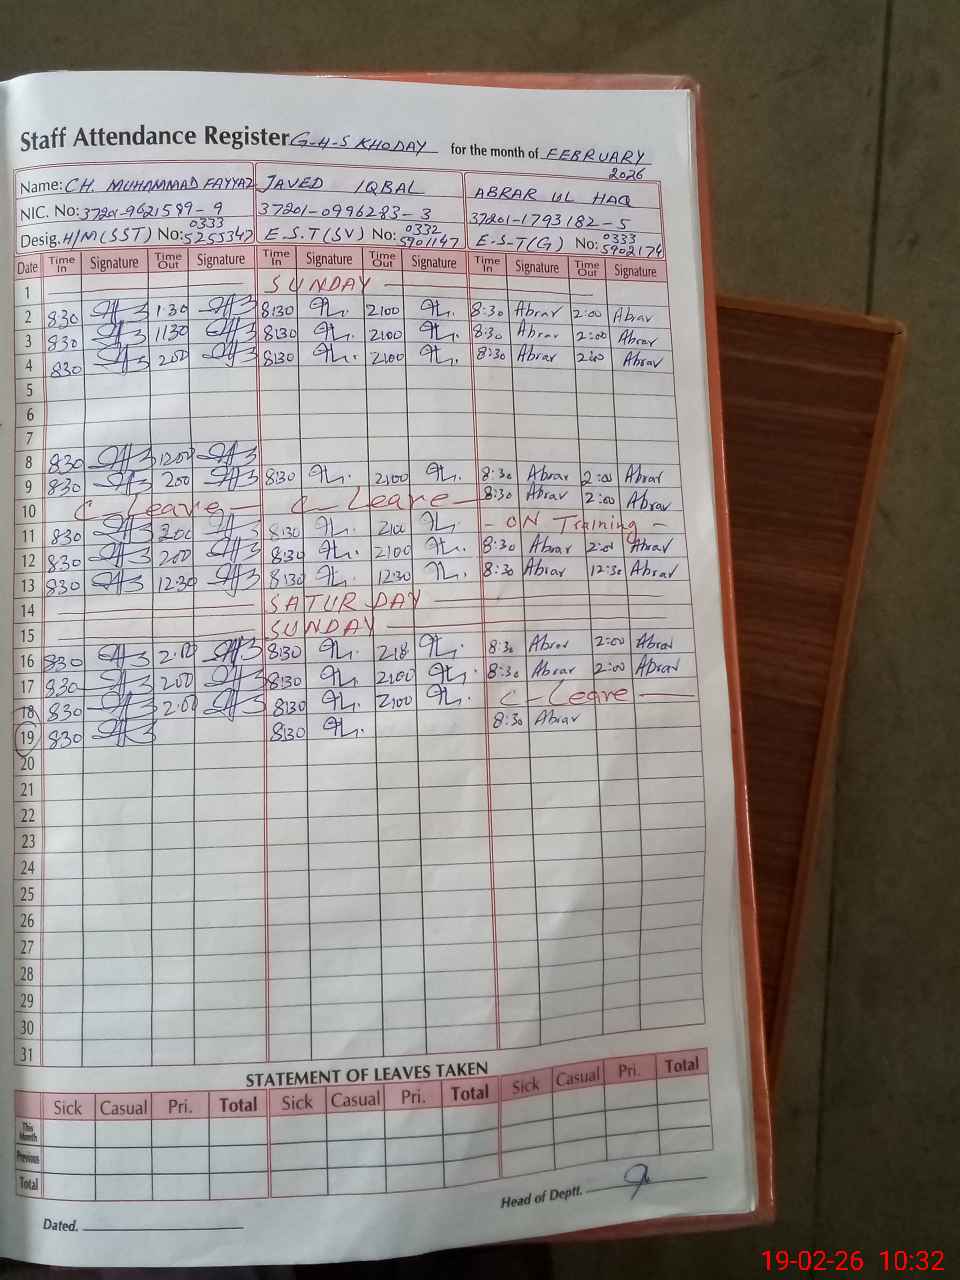 Staff Attendance Register G-H-S KHODAY for the month of FEBRUARY 2026
Name: CH. MUHAMMAD FAYYAZ JAVED IQBAL ABRAR UL HAQ
NIC. No: 37201-9621599-9 37201-0996283-3 37201-1793182-5
Desig. H/M(SST) No: 0333 5255347 E.S.T(SV) No: 0332 5901147 E-S-T(G) No: 0333 5902174
Date Time In Signature Time Out Signature Time In Signature Time Out Signature Time In Signature Time Out Signature
1 SUNDAY
2 830 1:30 8:30 2:00 8:30 Abrar 2:00 Abrar
3 830 1:30 8:30 2:00 8:30 Abrar 2:00 Abrar
4 830 200 8:30 2:00 8:30 Abrar 2:00 Abrar
5
6
7
8 830 1200
9 830 200 8:30 2:00 8:30 Abrar 2:00 Abrar
10 C-Leave- C-Leave- 8:30 Abrar 2:00 Abrar
11 830 200 8:30 2:00 - ON Training -
12 830 200 8:30 2:00 8:30 Abrar 2:00 Abrar
13 830 12:30 8:30 12:30 8:30 Abrar 12:30 Abrar
14 SATURDAY
15 SUNDAY
16 830 2:00 8:30 8:30 Abrar 2:00 Abrar
17 830 200 8:30 2:00 8:30 Abrar 2:00 Abrar
18 830 2:00 8:30 2:00 C-Leave
19 830 8:30 8:30 Abrar
20
21
22
23
24
25
26
27
28
29
30
31
STATEMENT OF LEAVES TAKEN
Sick Casual Pri. Total Sick Casual Pri. Total Sick Casual Pri. Total
This Month
Previous
Total
Dated. Head of Deptt.
19-02-26 10:32